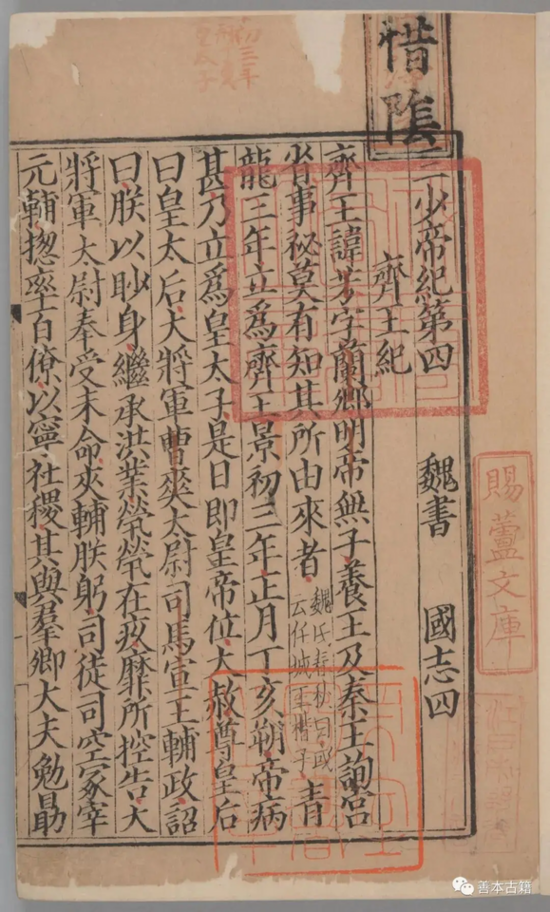 惜陰
三少帝紀第四　魏書　國志四
齊王紀
齊王諱芳字蘭卿明帝無子養王及秦王詢宮
省事秘莫有知其所由來者魏氏春秋曰或云任城王楷子青
龍三年立爲齊王景初三年正月丁亥朔帝病
甚乃立爲皇太子是日即皇帝位大赦尊皇后
曰皇太后大將軍曹爽太尉司馬宣王輔政詔
曰朕以眇身繼承洪業煢煢在疚靡所控告大
將軍太尉奉受末命夾輔朕躬司徒司空冢宰
元輔揔率百僚以寧社稷其與羣卿大夫勉勗
賜蘆文庫
善本古籍